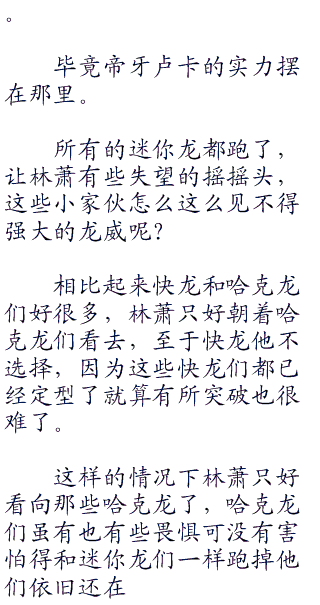 。
毕竟帝牙卢卡的实力摆
在那里。
所有的迷你龙都跑了，
让林萧有些失望的摇摇头，
这些小家伙怎么这么见不得
强大的龙威呢？
相比起来快龙和哈克龙
们好很多，林萧只好朝着哈
克龙们看去，至于快龙他不
选择，因为这些快龙们都已
经定型了就算有所突破也很
难了。
这样的情况下林萧只好
看向那些哈克龙了，哈克龙
们虽有也有些畏惧可没有害
怕得和迷你龙们一样跑掉他
们依旧还在